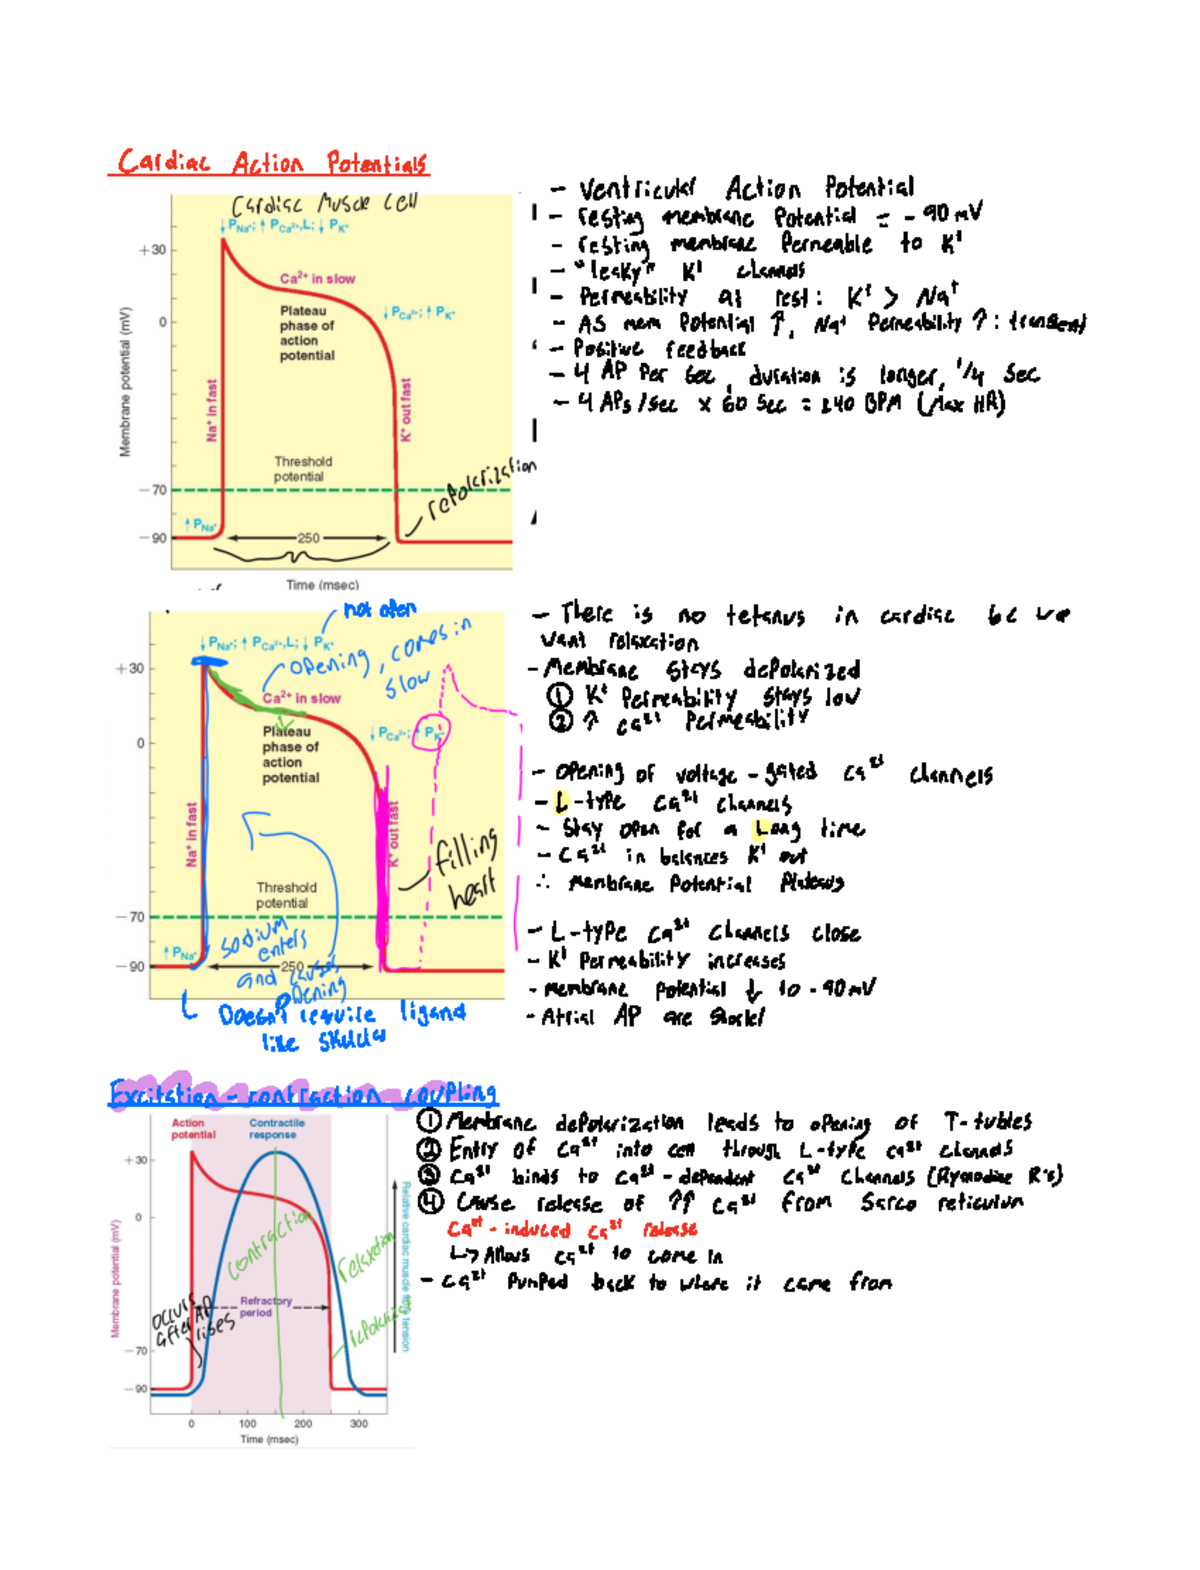 Cardiac Action Potentials
Cardiac Muscle Cell
↓PNa⁺; ↑PCa²⁺,L; ↓PK⁺
+30
Ca²⁺ in slow
Plateau
phase of
action
potential
↓PCa²⁺; ↑PK⁺
0
Membrane potential (mV)
Na⁺ in fast
K⁺ out fast
Threshold
potential
−70
repolarization
↑PNa⁺
−90
250
Time (msec)
- Ventricular Action Potential
- resting membrane Potential = -90 mV
- resting membrane Permeable to K⁺
- "leaky" K⁺ channels
- Permeability at rest: K⁺ > Na⁺
- AS mem Potential ↑, Na⁺ Permeability ↑: transient
- Positive feedback
- 4 AP Per sec, duration is longer, 1/4 sec
- 4 APs/sec x 60 sec = 240 BPM (Max HR)
not open
↓PNa⁺; ↑PCa²⁺,L; ↓PK⁺
opening, comes in
slow
+30
Ca²⁺ in slow
Plateau
phase of
action
potential
↓PCa²⁺; ↑PK⁺
0
Na⁺ in fast
K⁺ out fast
filling
heart
Threshold
potential
−70
sodium
enters
and causes
opening
↑PNa⁺
−90
250
Doesn't require ligand
like skeletal
- There is no tetanus in cardiac bc we
want relaxation
- Membrane stays depolarized
① K⁺ Permeability stays low
② ↑ Ca²⁺ Permeability
- opening of voltage-gated Ca²⁺ channels
- L-type Ca²⁺ channels
- Stay open for a Long time
- Ca²⁺ in balances K⁺ out
∴ Membrane Potential Plateaus
- L-type Ca²⁺ channels close
- K⁺ Permeability increases
- membrane potential ↓ to -90mV
- Atrial AP are shorter
Excitation-contraction coupling
Action
potential
Contractile
response
+30
0
−70
−90
Membrane potential (mV)
Relative cardiac muscle fibre tension
contraction
relaxation
Refractory
period
occurs
after AP
rises
repolarize
0 100 200 300
Time (msec)
① Membrane depolarization leads to opening of T-tubles
② Entry of Ca²⁺ into cell through L-type Ca²⁺ channels
③ Ca²⁺ binds to Ca²⁺-dependent Ca²⁺ channels (Ryanodine R's)
④ Cause release of ↑↑ Ca²⁺ from Sarco reticulum
Ca²⁺-induced Ca²⁺ release
↳ Allows Ca²⁺ to come in
- Ca²⁺ pumped back to where it came from